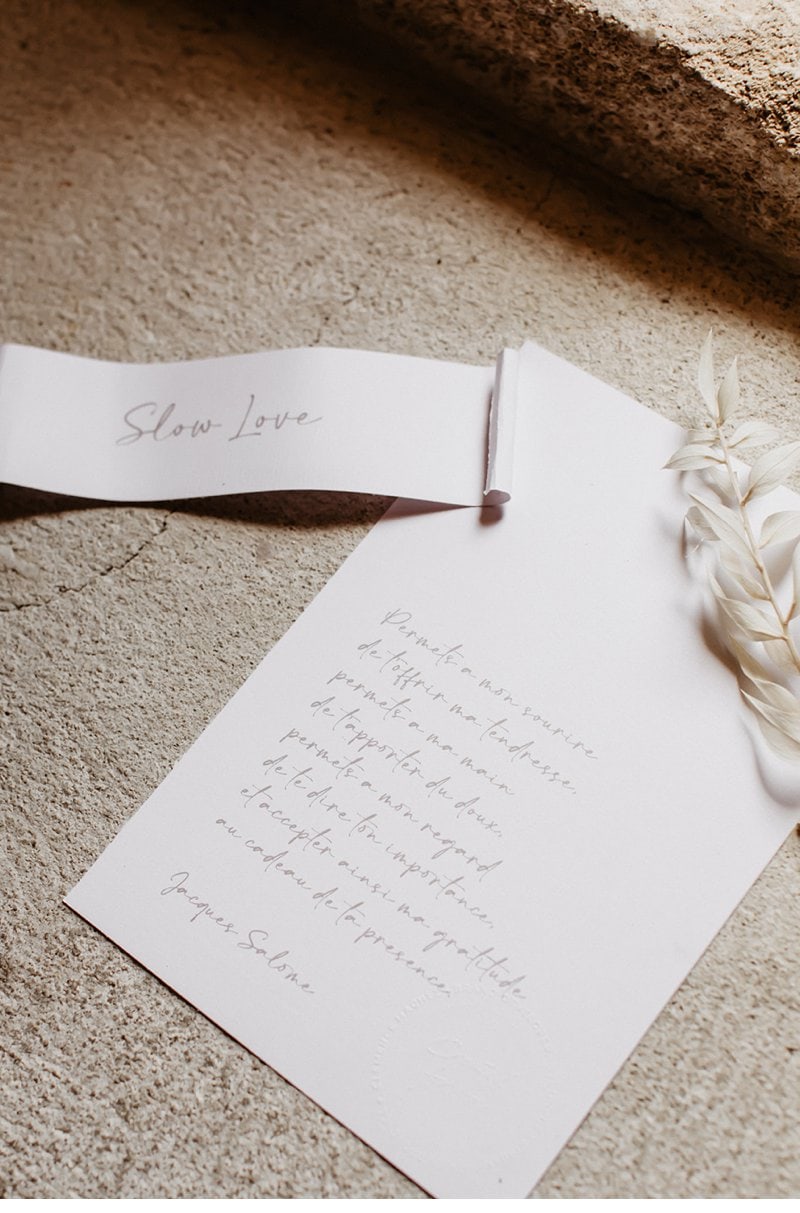 Slow Love
Permets a mon sourire
de t'offrir ma tendresse,
permets a ma main
de t'apporter du doux,
permets a mon regard
de te dire ton importance,
et accepter ainsi ma gratitude
au cadeau de ta presence.
Jacques Salome